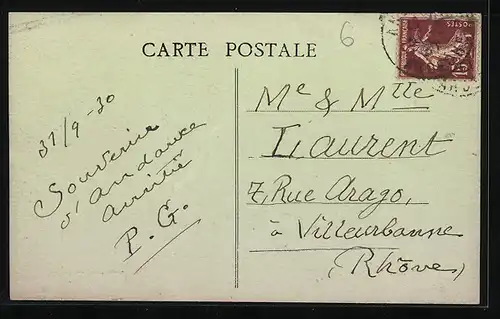 6
POSTES
CARTE POSTALE
31/9-30
Souvenir
d'andance
amitié
P. G.
Me & Mlle
Laurent
7, Rue Arago,
à Villeurbanne
(Rhône)